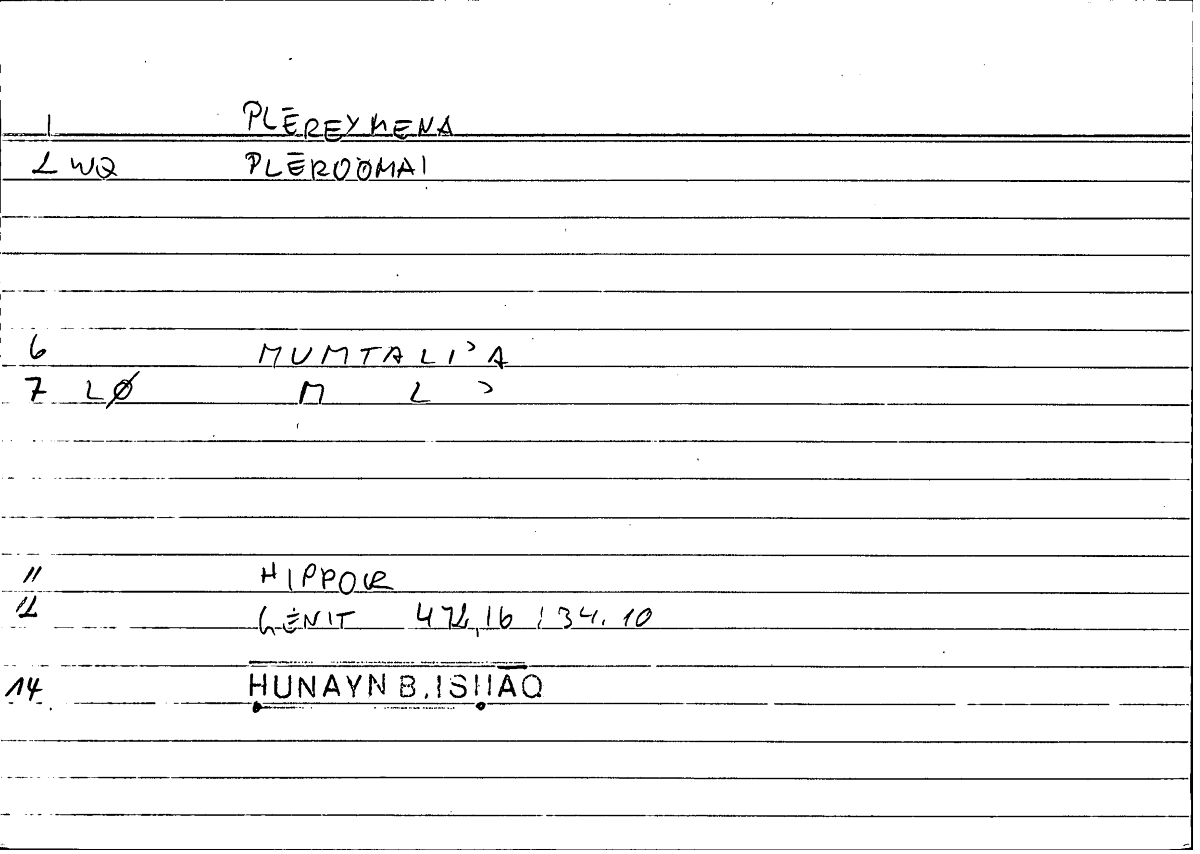 1 PLĒREYMENA
2 WQ PLĒROŌMAI
6 MUMTALI'A
7 LØ M L '
11 HIPPOKR
12 GENIT 472,16 ; 34.10
14 ḤUNAYN B. ISḤĀQ